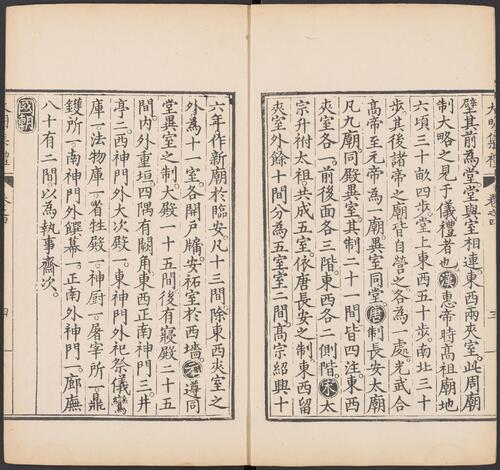 壁其前爲堂堂與室相連東西兩夾室此周廟
制大略之見于儀禮者也漢惠帝時高祖廟地
六頃三十畝四步堂上東西五十步南北三十
步其後諸帝之廟皆自營之各爲一處光武合
高帝至元帝爲一廟異室同堂唐制長安太廟
凡九廟同殿異室其制二十一間皆四注東西
夾室各一前後面各三階東西各二側階宋太
宗升祔太祖共成五室依唐長安之制東西留
夾室外餘十間分爲五室室二間高宗紹興十
六年作新廟於臨安凡十三間除東西夾室之
外爲十一室各開戶牖安祏室於西墻元遵同
堂異室之制大殿一十五間後有寢殿二十五
間內外重垣四隅有闕角東西正南神門三井
亭二西神門外大次殿一東神門外祀祭儀鸞
庫一法物庫一省牲殿一神厨一屠宰所一鼎
鑊所一南神門外饌幕一正南外神門一廊廡
八十有二間以爲執事齋次
國朝
大明集禮
卷之四
三
四